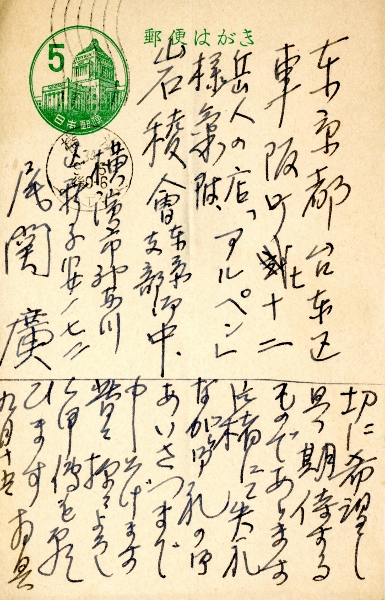 郵便はがき
5
日本郵便
東京都台東区
車阪町 七十二
岳人の店「アルペン」
様気附、
岩稜会東京支部御中、
横濱市神奈川
区新子安一ノ七二
尾関 廣
切に希望し
且つ期待する
ものであります
乍末筆失礼
なが御礼の御
あいさつまで
申し上げます
皆々様によろし
く御傳を願
ひます 敬具
九月十五日